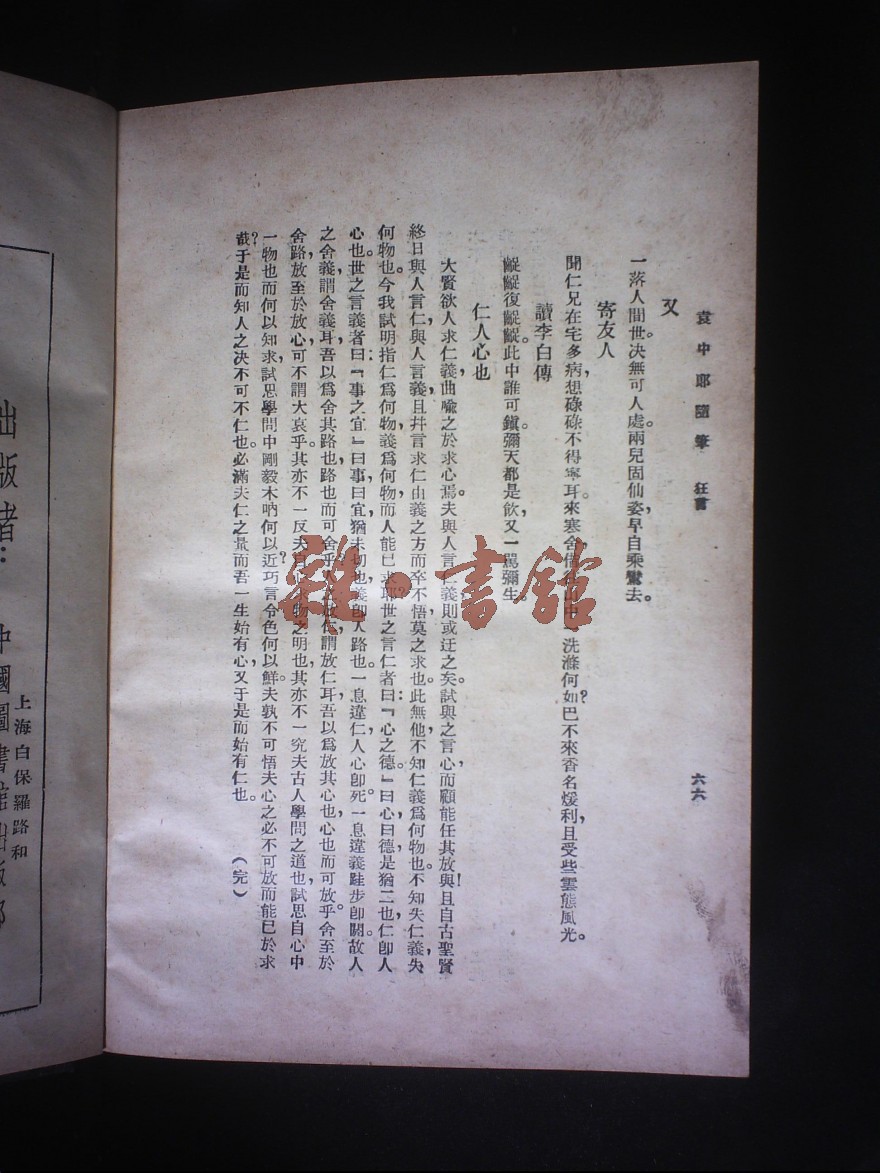 袁中郎隨筆 狂書
六六
又
一落人間世。決無可人處。兩兒固仙姿,早自乘鸞去。
寄友人
聞仁兄在宅多病,想碌碌不得寧耳。來寒舍借
山中
洗滌何如?巴不來香名煖利,且受些雲態風光。
讀李白傳
齷齪復齷齪。此中誰可鎭。彌天都是飮,又一駡彌生。
仁人心也
大賢欲人求仁義,曲喩之於求心焉。夫與人言仁義則或迂之矣。試與之言心,而顧能任其放與!且自古聖賢
終日與人言仁,與人言義,且幷言求仁由義之方,而卒不悟莫之求也。此無他,不知仁義爲何物也。不知失仁義失
何物也。今我試明指仁爲何物,義爲何物,而人能巳求耶?世之言仁者曰:『心之德。』曰心曰德,是猶二也,仁卽人
心也。世之言義者曰:『事之宜』曰事,曰宜,猶未切也,義卽人路也。一息違仁,人心卽死。一息違義,跬步卽闕。故人
之舍義,謂舍義耳,吾以爲舍其路也,路也而可舍乎?人之放仁,謂放仁耳,吾以爲放其心也,心也而可放乎。舍至於
舍路,放至於放心,可不謂大哀乎。其亦不一反夫自心求物之明也,其亦不一究夫古人學問之道也,試思自心中
一物也,而何以知求,試思學問中剛毅木吶何以近?巧言令色何以鮮?夫孰不可悟夫心之必不可放,而能巳於求
哉?于是而知人之決不可不仁也。必滿夫仁之量,而吾一生始有心,又于是而始有仁也。 (完)
雜·書館
出版者:
中國圖書
上海白保羅路和